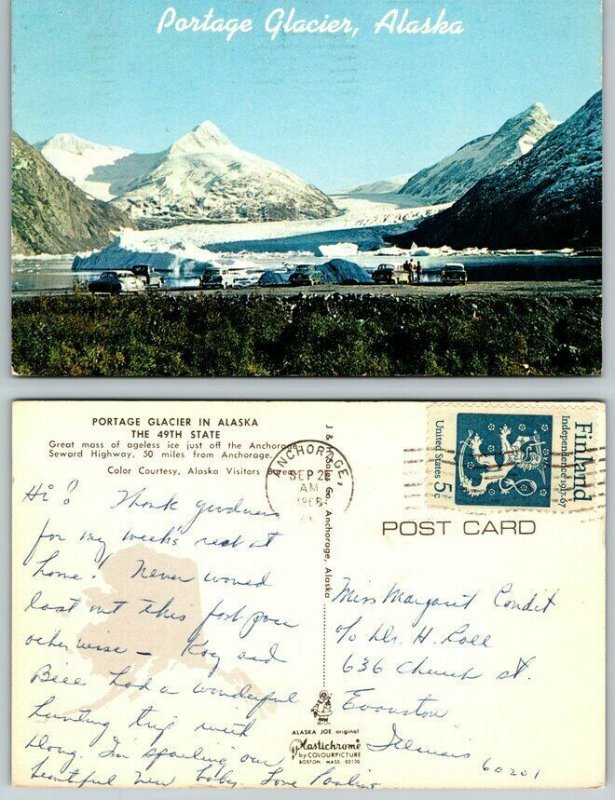 Portage Glacier, Alaska
PORTAGE GLACIER IN ALASKA
THE 49TH STATE
Great mass of ageless ice just off the Anchorage
Seward Highway, 50 miles from Anchorage.
Color Courtesy, Alaska Visitors
Hi! Thank goodness
for my week's rest at
home! Never would
last out this fast pace
otherwise – and
had a wonderful
hunting trip with
Doug. I'm spoiling our
beautiful new baby. Love Pauline
J & H Sales Co., Anchorage, Alaska
ALASKA JOE original
Plastichrome
by COLOURPICTURE
BOSTON MASS 02130
ANCHORAGE,
SEP 2
AM
Finland
Independence 1917-67
United States 5c
POST CARD
Miss Margaret Condit
c/o Dr. H. Roll
636 Church St.
Evanston
Illinois
60201